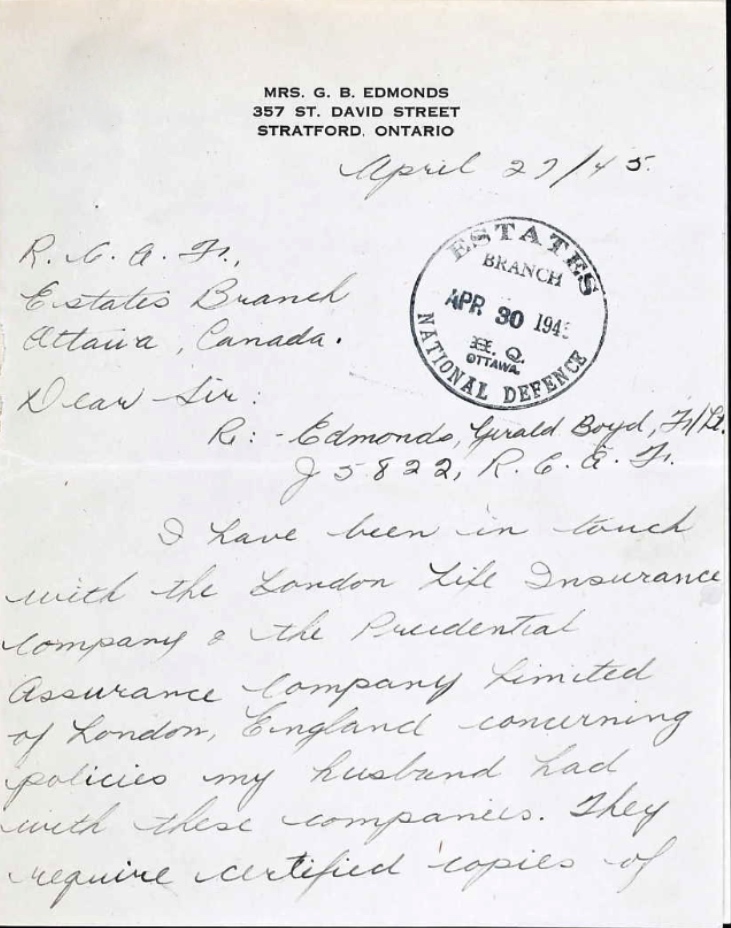 MRS. G. B. EDMONDS
357 ST. DAVID STREET
STRATFORD, ONTARIO
April 27/45.
ESTATES
BRANCH
APR 30 194
H. Q.
OTTAWA
NATIONAL DEFENCE
R. C. A. F.,
Estates Branch
Ottawa, Canada.
Dear Sir:
Re: - Edmonds, Gerald Boyd, F/Lt.
J 5822, R. C. A. F.
I have been in touch
with the London Life Insurance
Company & the Prudential
Assurance Company Limited
of London, England concerning
policies my husband had
with these companies. They
require certified copies of